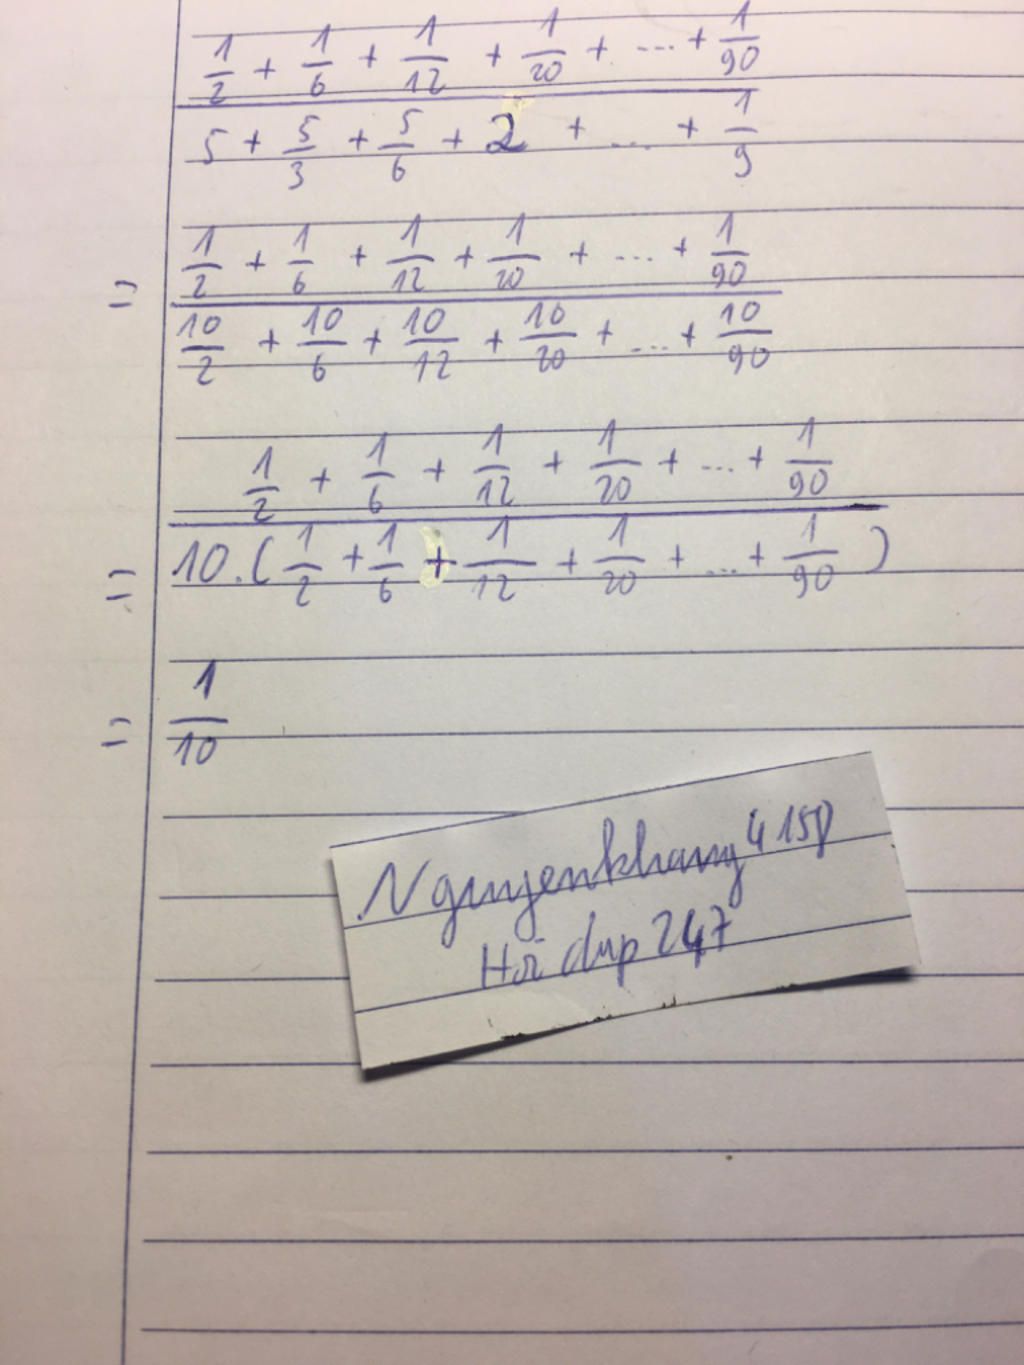 1/2 + 1/6 + 1/12 + 1/20 + ... + 1/90
5 + 5/3 + 5/6 + 2 + ... + 1/9
= 1/2 + 1/6 + 1/12 + 1/20 + ... + 1/90
10/2 + 10/6 + 10/12 + 10/20 + ... + 10/90
1/2 + 1/6 + 1/12 + 1/20 + ... + 1/90
= 10.(1/2 + 1/6 + 1/12 + 1/20 + ... + 1/90)
= 1/10
Nguyenkhang4158
Hoi dap 247